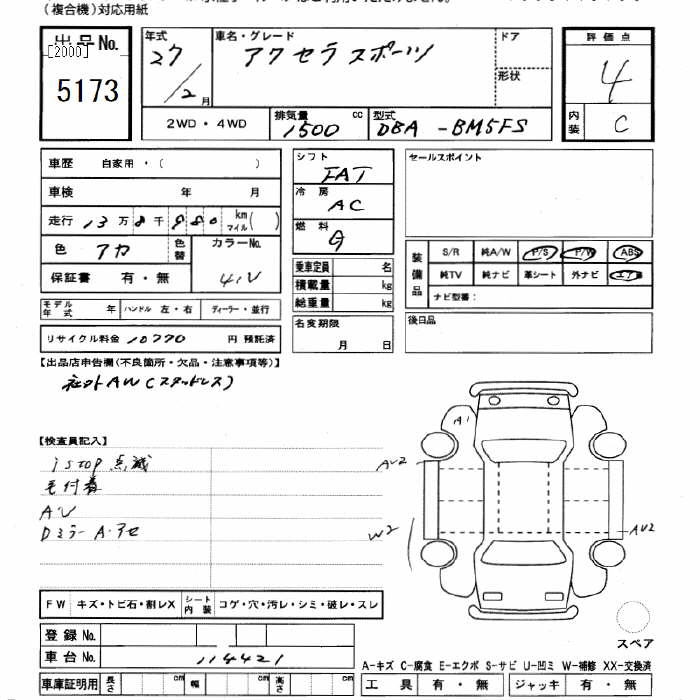 （複合機）対応用紙
出品No.
[2000]
5173
年式 27/2月
車名・グレード アクセラスポーツ
ドア
形状
評価点 4
内装 C
2WD・4WD
排気量 1500 cc
型式 DBA-BM5FS
車歴 自家用・（ ）
車検 年 月
走行 13万8千980km マイル( )
色 アカ 色替 カラーNo. 41V
保証書 有・無
モデル年式 年 ハンドル 左・右 ディーラー・並行
リサイクル料金 10770 円 預託済
シフト FAT
冷房 AC
燃料 G
乗車定員 名
積載量 kg
総重量 kg
名変期限 月 日
セールスポイント
装備品 S/R 純A/W P/S P/W ABS
純TV 純ナビ 革シート 外ナビ エアB
ナビ型番：
後日品
【出品店申告欄(不良箇所・欠品・注意事項等)】
社外AW(スタットレス)
【検査員記入】
istop 点滅
毛付着
AU
Dミラー A・アセ
A1
AU2
W2
AU2
FW キズ・トビ石・割レX シート内装 コゲ・穴・汚レ・シミ・破レ・スレ
登録No.
車台No. 114421
車庫証明用 長さ cm 幅 cm 高さ cm
スペア
A-キズ C-腐食 E-エクボ S-サビ U-凹ミ W-補修 XX-交換済
工具 有・無 ジャッキ 有・無